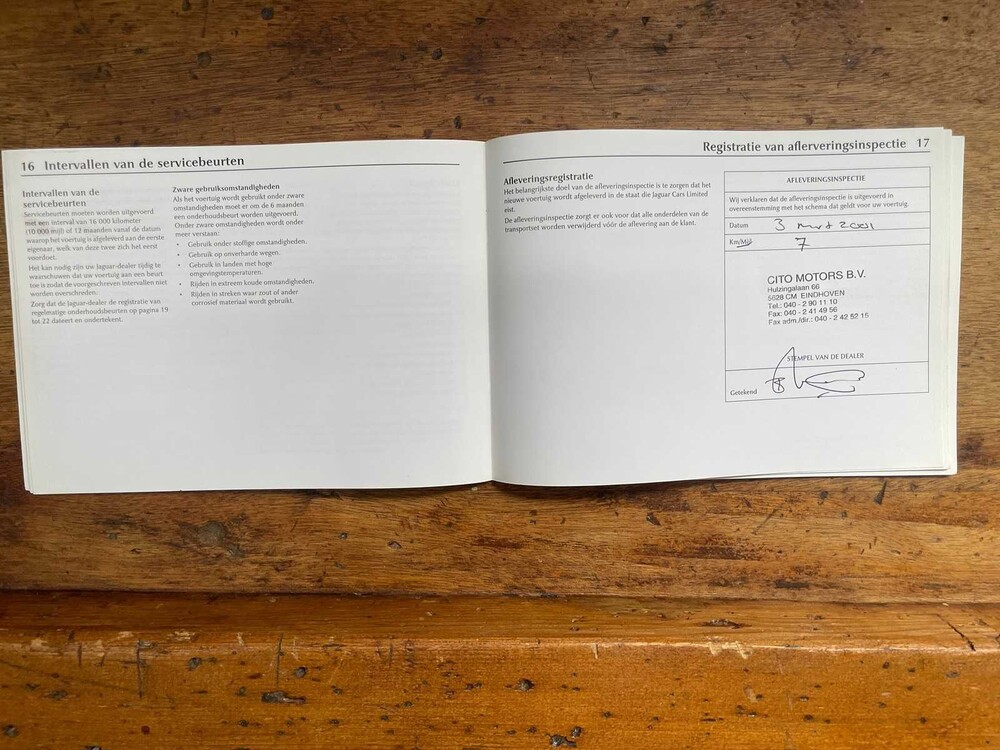 16 Intervallen van de servicebeurten
Intervallen van de
servicebeurten
Servicebeurten moeten worden uitgevoerd
met een interval van 16 000 kilometer
(10 000 mijl) of 12 maanden vanaf de datum
waarop het voertuig is afgeleverd aan de eerste
eigenaar, welk van deze twee zich het eerst
voordoet.
Het kan nodig zijn uw Jaguar-dealer tijdig te
waarschuwen dat uw voertuig aan een beurt
toe is zodat de voorgeschreven intervallen niet
worden overschreden.
Zorg dat de Jaguar-dealer de registratie van
regelmatige onderhoudsbeurten op pagina 19
tot 22 dateert en ondertekent.
Zware gebruiksomstandigheden
Als het voertuig wordt gebruikt onder zware
omstandigheden moet er om de 6 maanden
een onderhoudsbeurt worden uitgevoerd.
Onder zware omstandigheden wordt onder
meer verstaan:
• Gebruik onder stoffige omstandigheden.
• Gebruik op onverharde wegen.
• Gebruik in landen met hoge
omgevingstemperaturen.
• Rijden in extreem koude omstandigheden.
• Rijden in streken waar zout of ander
corrosief materiaal wordt gebruikt.
Registratie van aflerveringsinspectie 17
Afleveringsregistratie
Het belangrijkste doel van de afleveringsinspectie is te zorgen dat het
nieuwe voertuig wordt afgeleverd in de staat die Jaguar Cars Limited
eist.
De afleveringsinspectie zorgt er ook voor dat alle onderdelen van de
transportset worden verwijderd vóór de aflevering aan de klant.
AFLEVERINGSINSPECTIE
Wij verklaren dat de afleveringsinspectie is uitgevoerd in
overeenstemming met het schema dat geldt voor uw voertuig.
Datum 3 mrt 2001
Km/Mijl 7
CITO MOTORS B.V.
Hulzingalaan 66
5628 CM EINDHOVEN
Tel.: 040 - 2 90 11 10
Fax: 040 - 2 41 49 56
Fax adm./dir.: 040 - 2 42 52 15
STEMPEL VAN DE DEALER
Getekend